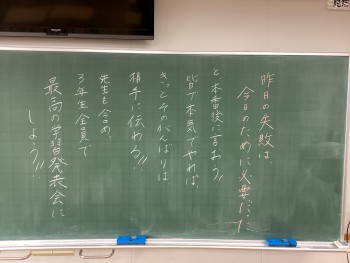 昨日の失敗は、
今日のために必要だった
と本番後に言おう!!
皆で本気でやれば、
きっとそのがんばりは
相手に伝わる!!
先生も含め、
3年生全員で
最高の学習発表会に
しよう!!